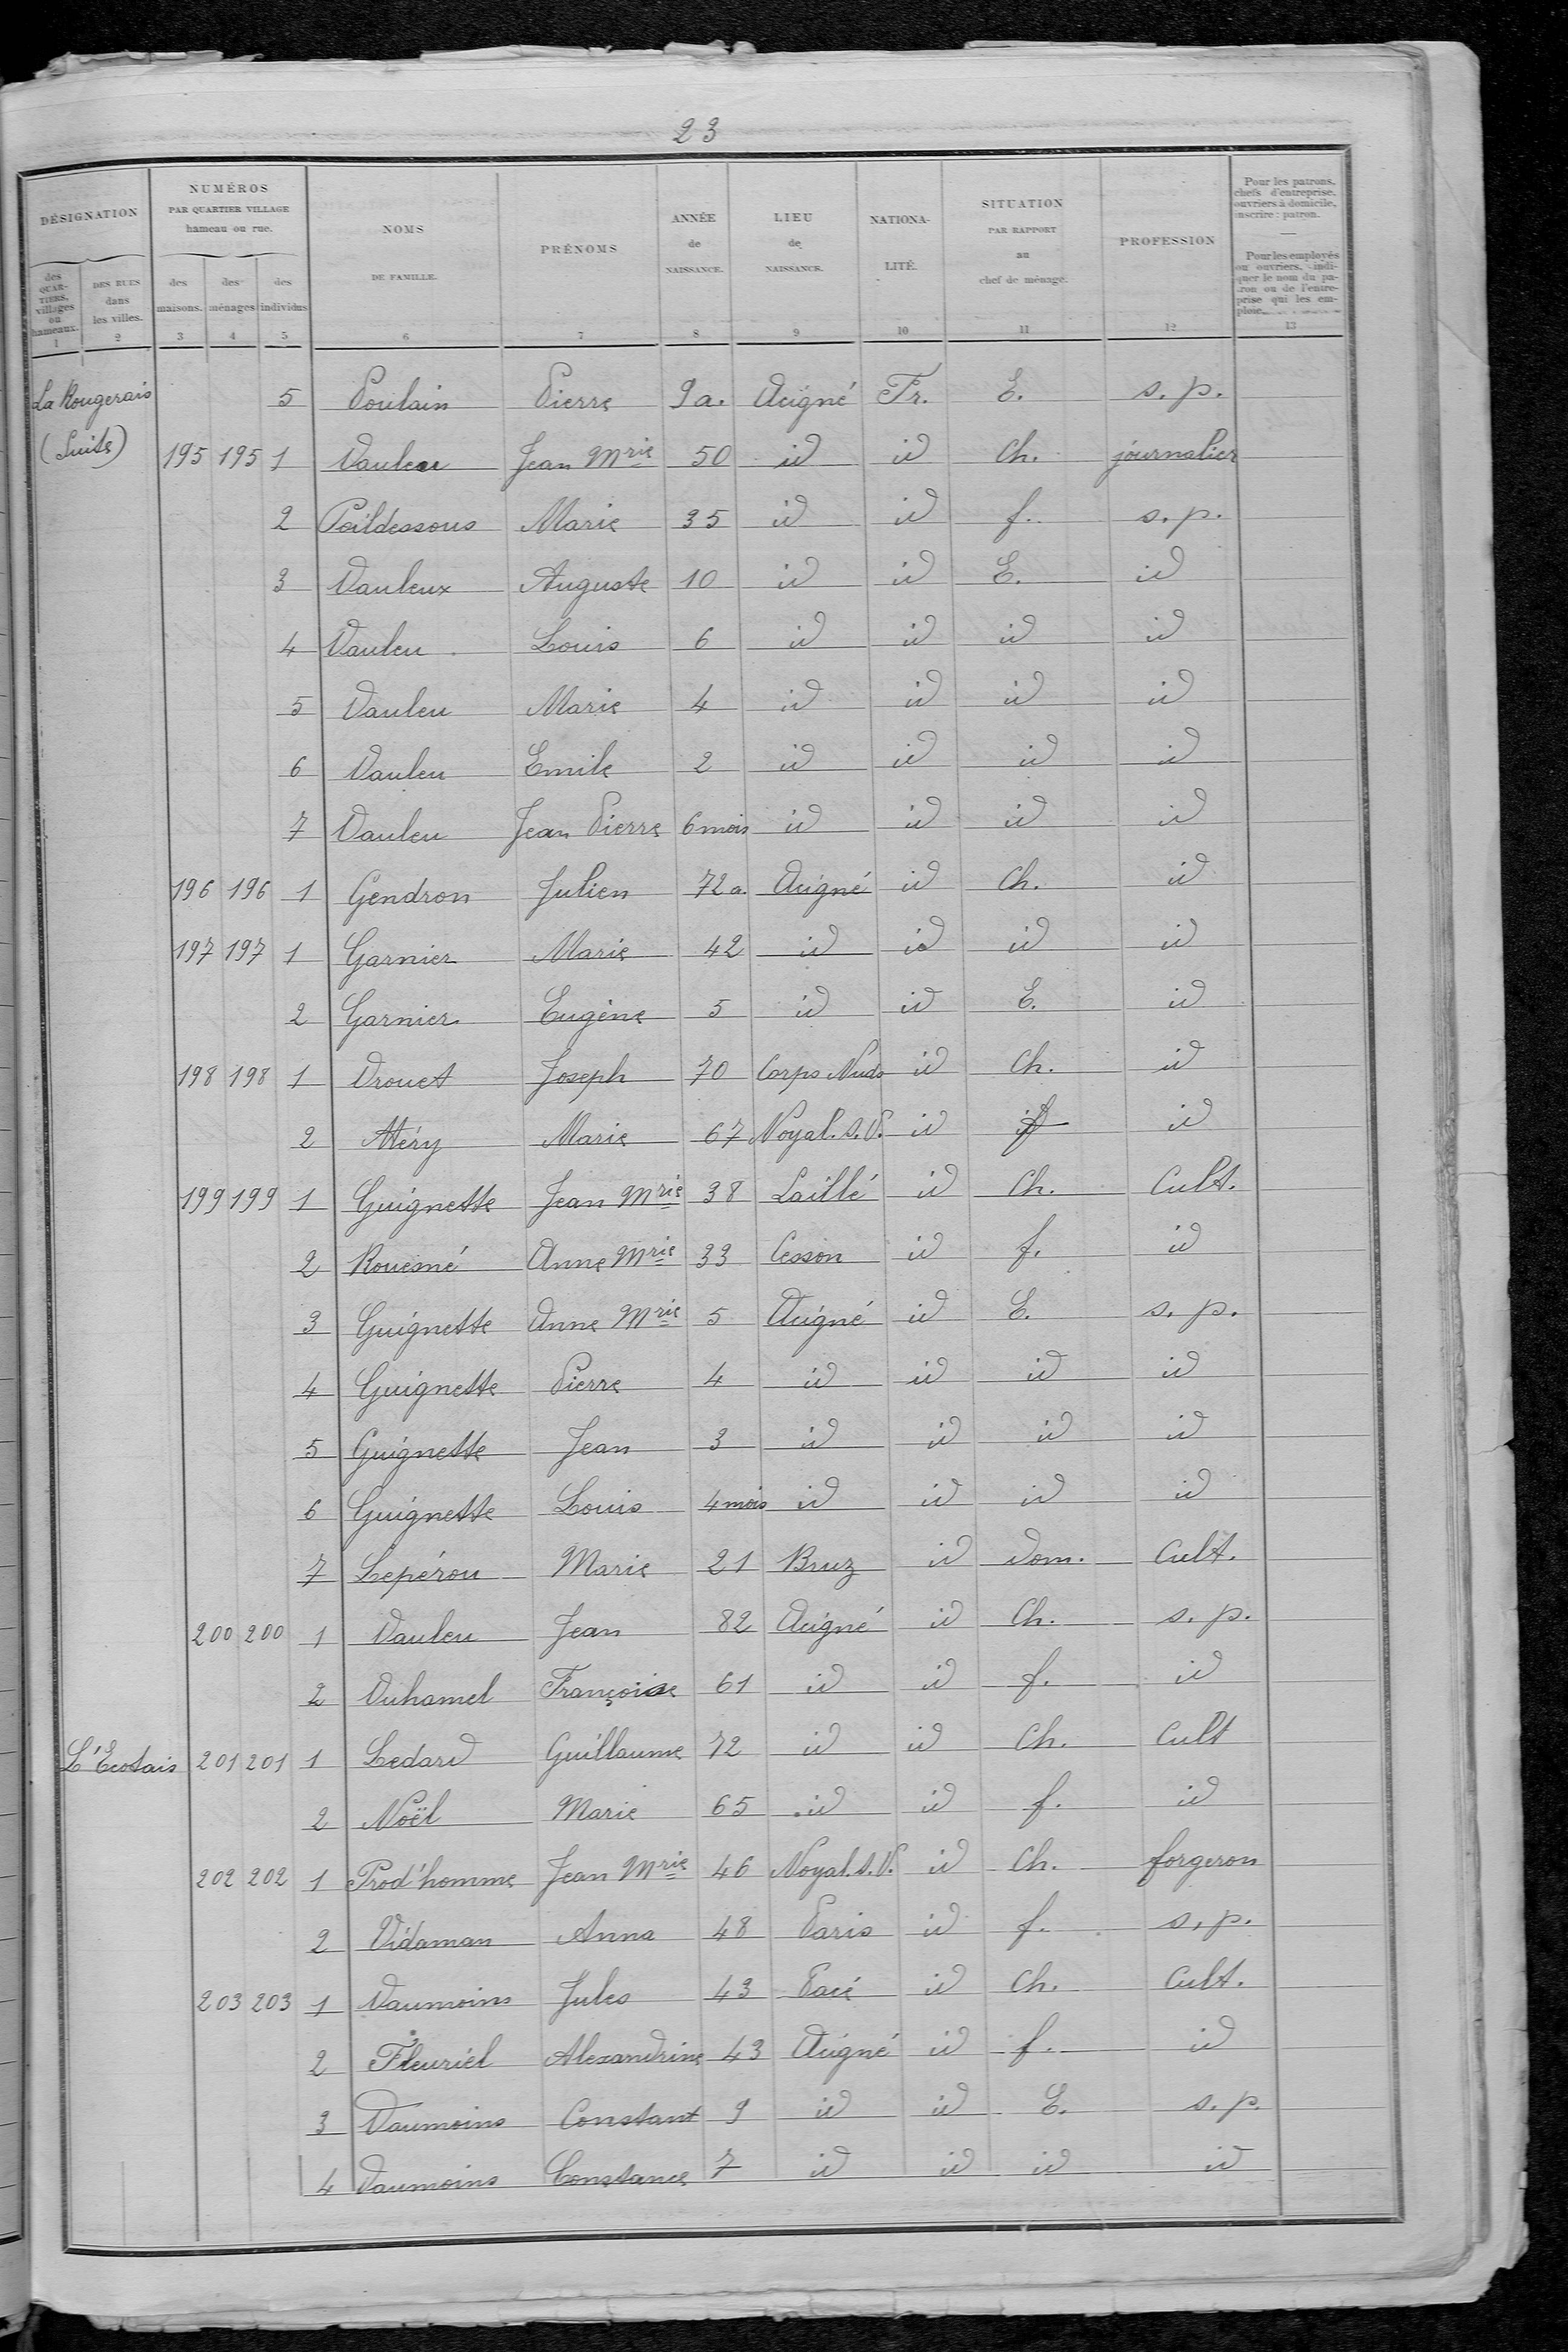 23
DÉSIGNATION
des QUARTIERS, villages ou hameaux. 1
DES RUES dans les villes. 2
NUMÉROS PAR QUARTIER VILLAGE hameau ou rue.
des maisons. 3
des ménages 4
des individus 5
NOMS DE FAMILLE. 6
PRÉNOMS 7
ANNÉE de NAISSANCE. 8
LIEU de NAISSANCE. 9
NATIONALITÉ. 10
SITUATION PAR RAPPORT au chef de ménage. 11
PROFESSION 12
Pour les patrons, chefs d'entreprise, ouvriers à domicile, inscrire : patron.
Pour les employés ou ouvriers, indiquer le nom du patron ou de l'entreprise qui les emploie. 13
La Rougerais 5 Poulain Pierre 9 a. Acigné Fr. E. s. p.
(Suite) 195 195 1 Vauleu Jean Mrie 50 id id Ch. journalier
2 Poildessous Marie 35 id id f. s. p.
3 Vauleux Auguste 10 id id E. id
4 Vauleu Louis 6 id id id id
5 Vauleu Marie 4 id id id id
6 Vauleu Emile 2 id id id id
7 Vauleu Jean Pierre 6 mois id id id id
196 196 1 Gendron Julien 72 a. Acigné id Ch. id
197 197 1 Garnier Marie 42 id id id id
2 Garnier Eugène 5 id id E. id
198 198 1 Drouet Joseph 70 Corps Nuds id Ch. id
2 Méry Marie 67 Noyal. s. V. id f id
199 199 1 Guignette Jean Mrie 38 Laillé id Ch. Cult.
2 Rouesné Anne Mrie 33 Cesson id f. id
3 Guignette Anne Mrie 5 Acigné id E. s. p.
4 Guignette Pierre 4 id id id id
5 Guignette Jean 3 id id id id
6 Guignette Louis 4 mois id id id id
7 Lepérou Marie 21 Bruz id dom. Cult.
200 200 1 Vauleu Jean 82 Acigné id Ch. s. p.
2 Duhamel Françoise 61 id id f. id
L'Ecotais 201 201 1 Ledard Guillaume 72 id id Ch. Cult
2 Noël Marie 65 id id f. id
202 202 1 Prod'homme Jean Mrie 46 Noyal. s. V. id Ch. forgeron
2 Vidaman Anna 48 Paris id f. s. p.
203 203 1 Daumoins Jules 43 Pacé id Ch. Cult.
2 Fleuriel Alexandrine 43 Acigné id f. id
3 Daumoins Constant 9 id id E. s. p.
4 Daumoins Constance 7 id id id id